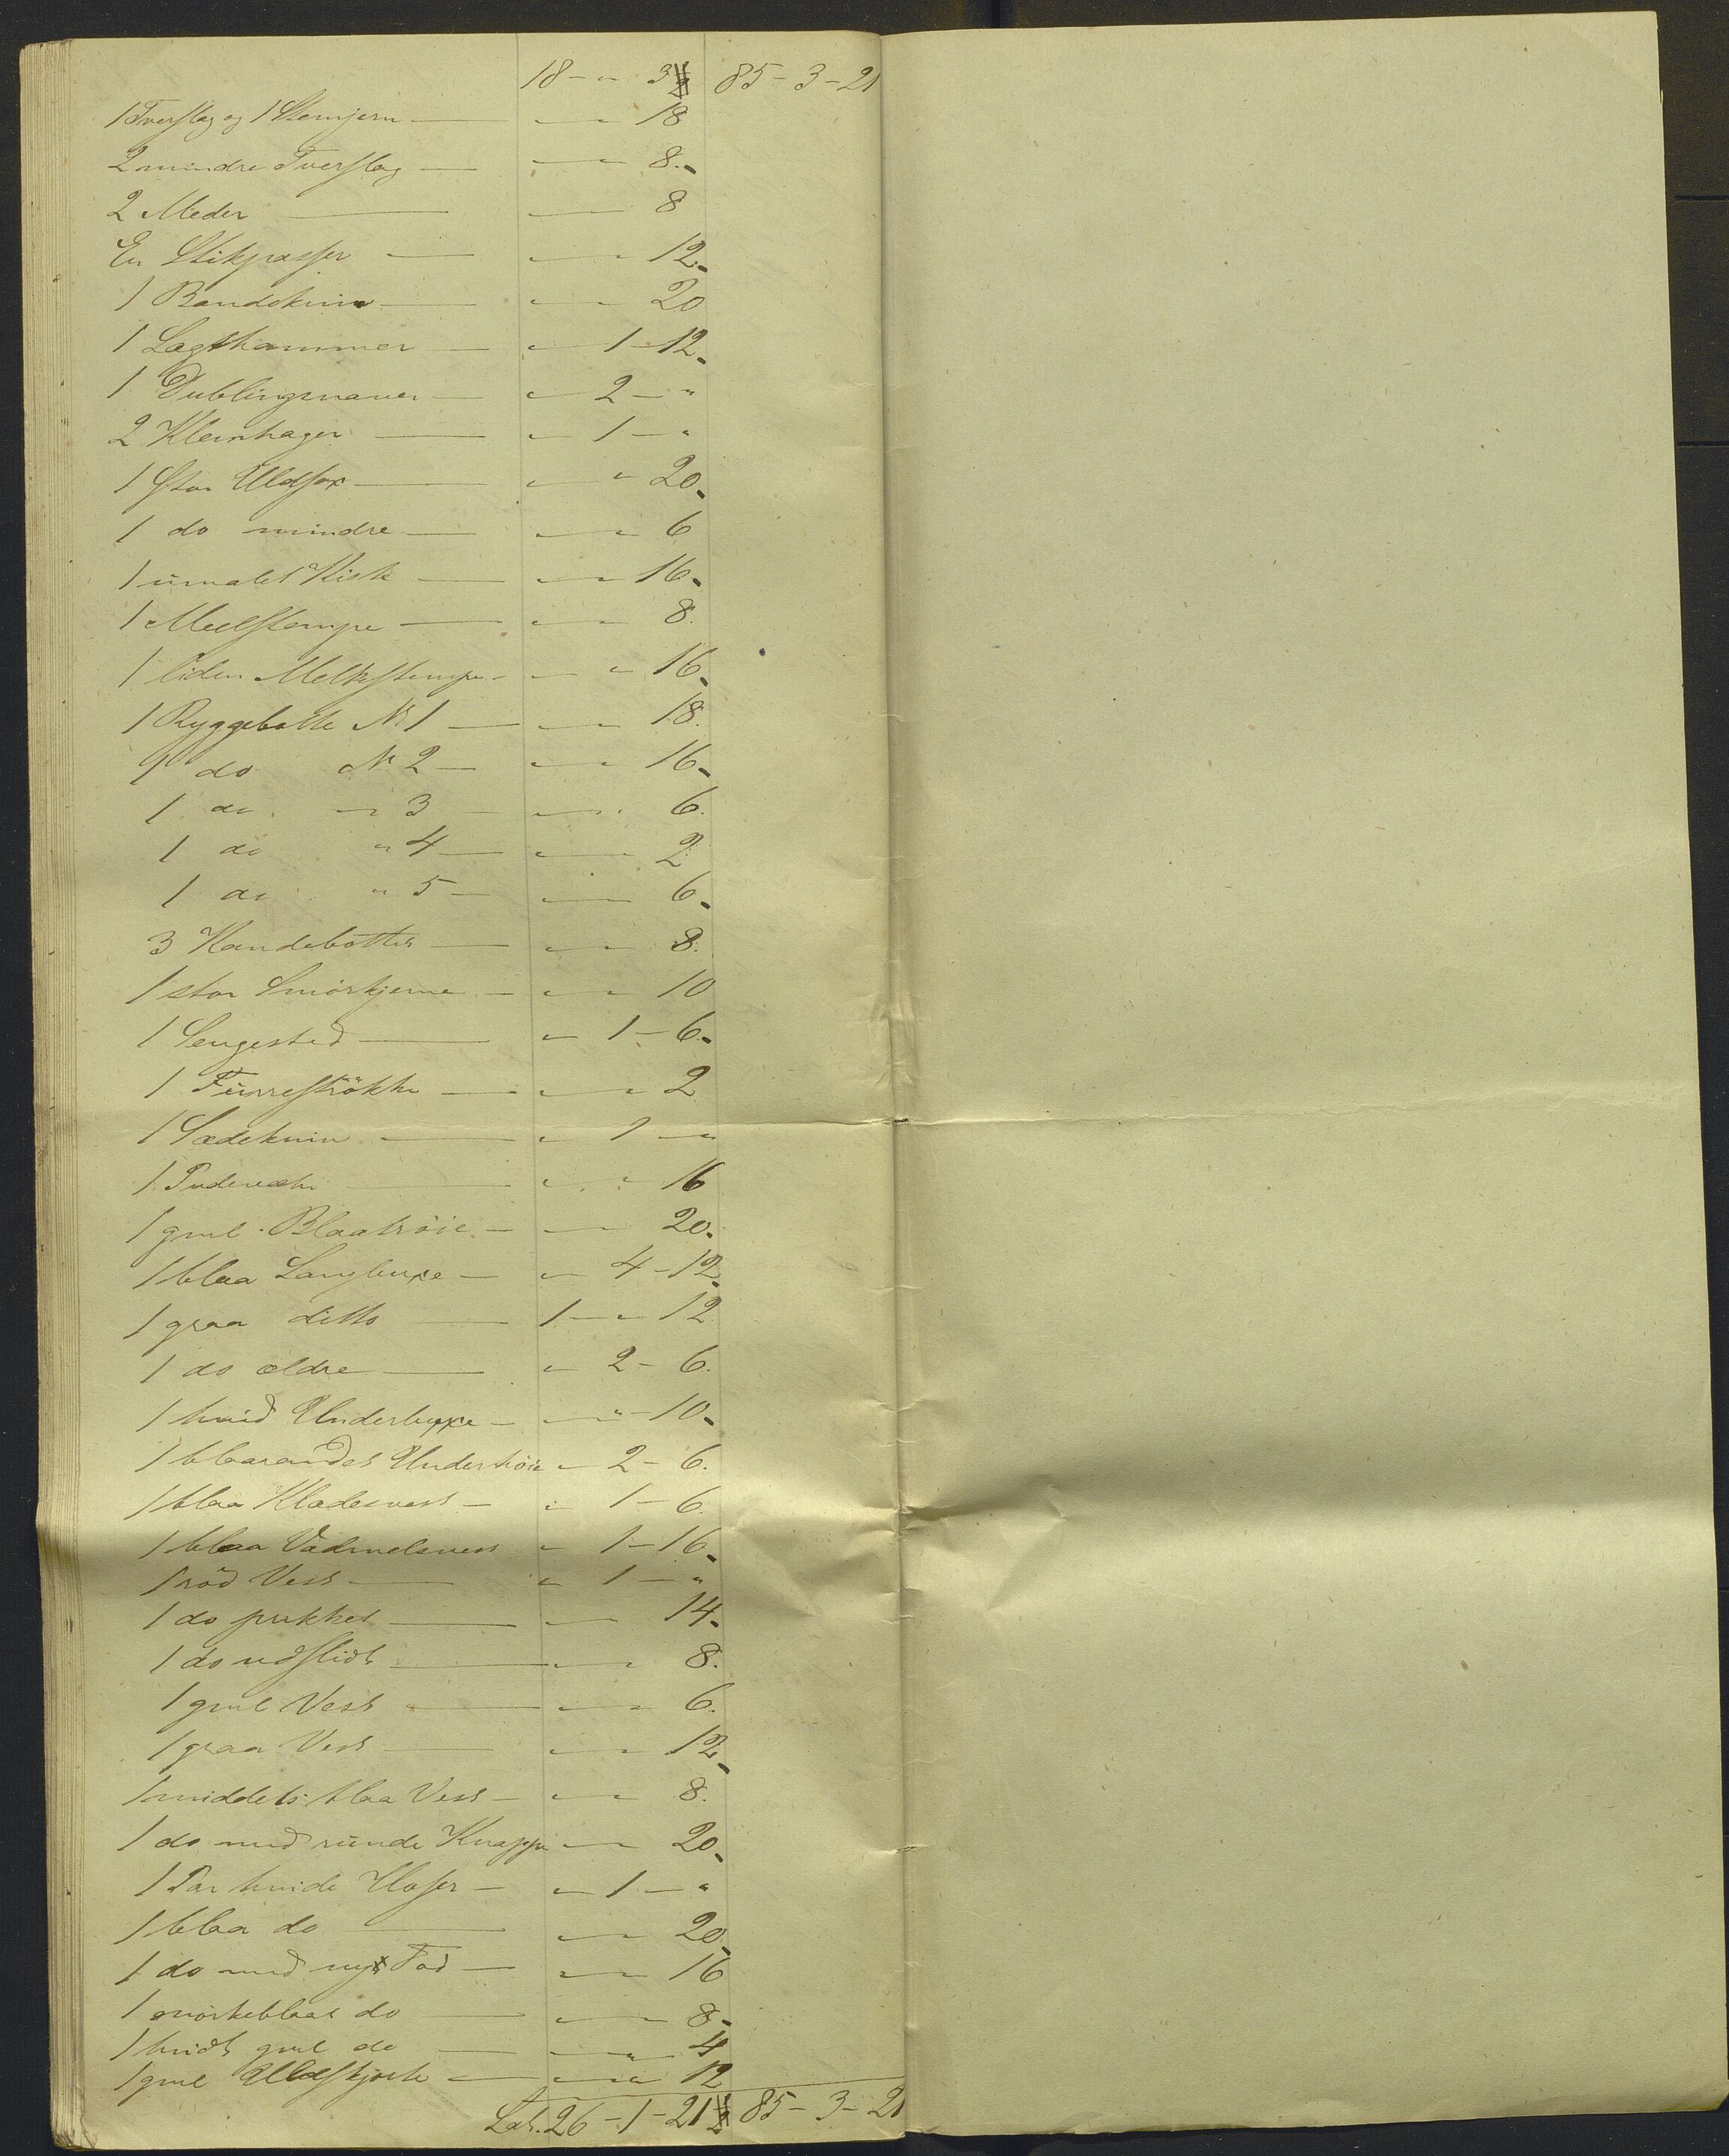 18 - " 3½ 85 - 3 - 21
1 Tverslag og 1 Stemjern — " — " 18
2 mindre Tverslag — " — " 8
2 Meder — " — " 8
En Stikpasser — " — " 12
1 Bandekniv — " — " 20
1 Lagthammer — " 1 - 12
1 Dublingsnaver — " 2 - "
2 Klemhager — " 1 - "
1 stor Uldsax — " " 20
1 do mindre — " — " 6
1 umalet Kiste — " — " 16
1 Meelstampe — " — " 8
1 liden Melkestampe - " " 16
1 Ryggebøtte No 1 — " — " 18
1 do No 2 — " — " 16
1 do " 3 — " — " 6
1 do " 4 — " — " 2
1 do " 5 — " — " 6
3 Kandebøtter — " — " 8
1 stor Smørkjerne — " — " 10
1 Sengested — " 1 - 6
1 Furrestrøkke — " — " 2
1 Sædekniv — " 1 - "
1 — " " 16
1 gml. Blaatrøie — " — " 20
1 blaa Langbuxe — " 4 - 12
1 graa ditto — 1 - " 12
1 do ældre — " 2 - 6
1 hvid Underbuxe — " - " 10
1 blaarandet Undertrøie " 2 - 6
1 blaa Klædesvest — " 1 - 6
1 blaa Vadmelsvest " 1 - 16
1 rød Vest — " 1 - "
1 do prikket — " — 14
1 do udslidt — " — " 8
1 gml Vest — " — " 6
1 graa Vest — " — " 12
1 middels blaa Vest — " — " 8
1 do med runde Knappe — " 20
1 Par hvide Hoser — " 1 - "
1 blaa do — " — " 20
1 do med nyt Fod — " — " 16
1 mørkeblaat do — " — " 8
1 hvidt gml do — " — " 4
1 gml Uldskjorte — " — " 12
Lat. 26 - 1 - 21½ 85 - 3 - 21